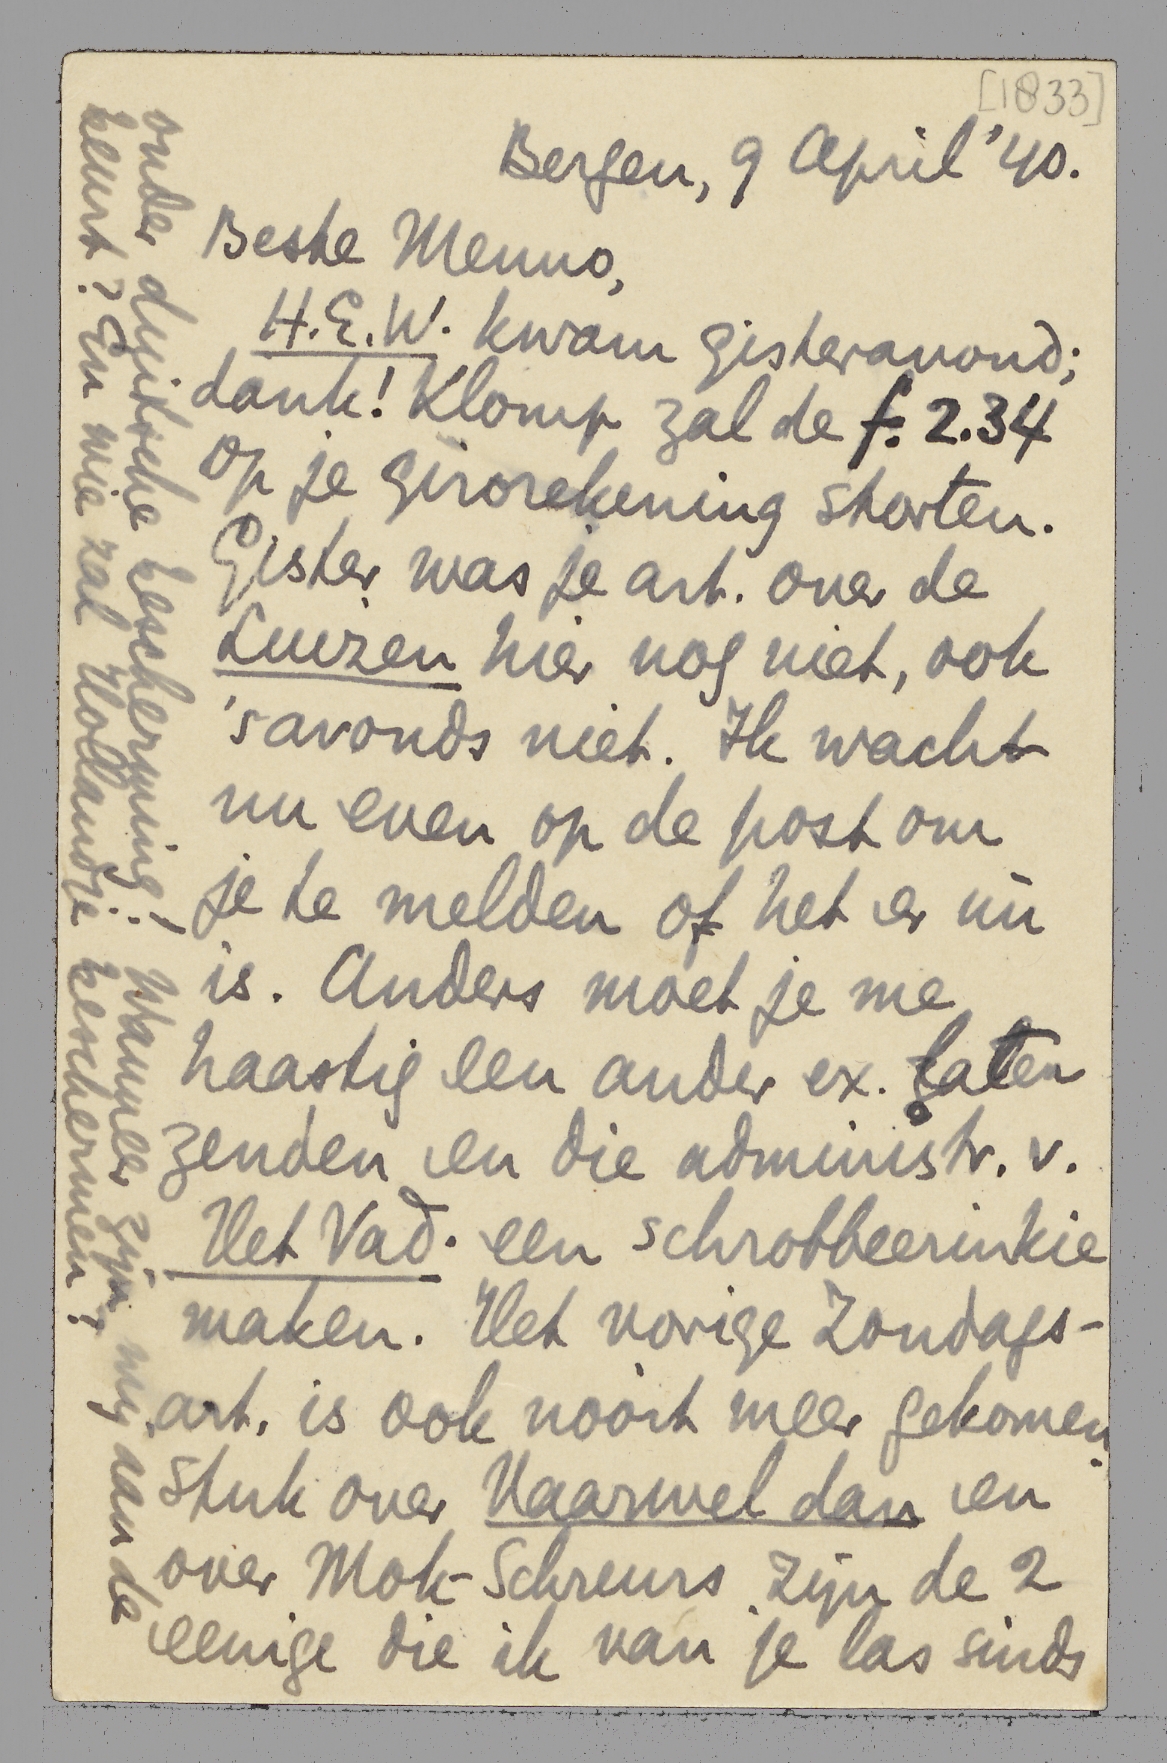 [1833]
Bergen, 9 April '40.
Beste Menno,
H.E.W. kwam gisteravond;
dank! Klomp zal de f. 2.34
op je girorekening storten.
Gister was je art. over de
Luizen hier nog niet, ook
's avonds niet. Ik wacht
nu even op de post om
je te melden of het er nù
is. Anders moet je me
haastig een ander ex. laten
zenden en die administr. v.
Het Vad. een schrobbeerinkie
maken. Het vorige Zondags-
art. is ook nooit meer gekomen.
Stuk over Vaarwel dan en
over Mok-Schreurs zijn de 2
eenige die ik van je las sinds
onder duitsche bescherming! Wanneer zijn wij aan de
beurt? En wie zal Hollandzi beschermen?